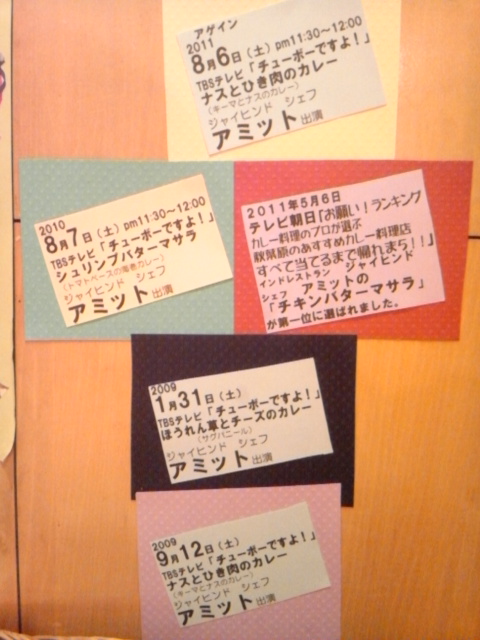 アゲイン
2011
8月6日(土)pm11:30~12:00
TBSテレビ「チューボーですよ!」
ナスとひき肉のカレー
(キーマとナスのカレー)
ジャイヒンド シェフ
アミット出演
2010
8月7日(土)pm11:30~12:00
TBSテレビ「チューボーですよ!」
シュリンプバターマサラ
(トマトベースの海老カレー)
ジャイヒンド シェフ
アミット出演
2011年5月6日
テレビ朝日「お願い!ランキング
カレー料理のプロが選ぶ
秋葉原のおすすめカレー料理店
すべて当てるまで帰れまら!!」
インドレストラン ジャイヒンド
シェフ アミットの
「チキンバターマサラ」
が第一位に選ばれました。
2009
1月31日(土)
TBSテレビ「チューボーですよ!」
ほうれん草とチーズのカレー
(サグパニール)
ジャイヒンド シェフ
アミット出演
2009
9月12日(土)
TBSテレビ「チューボーですよ!」
ナスとひき肉のカレー
(キーマとナスのカレー)
ジャイヒンド シェフ
アミット出演